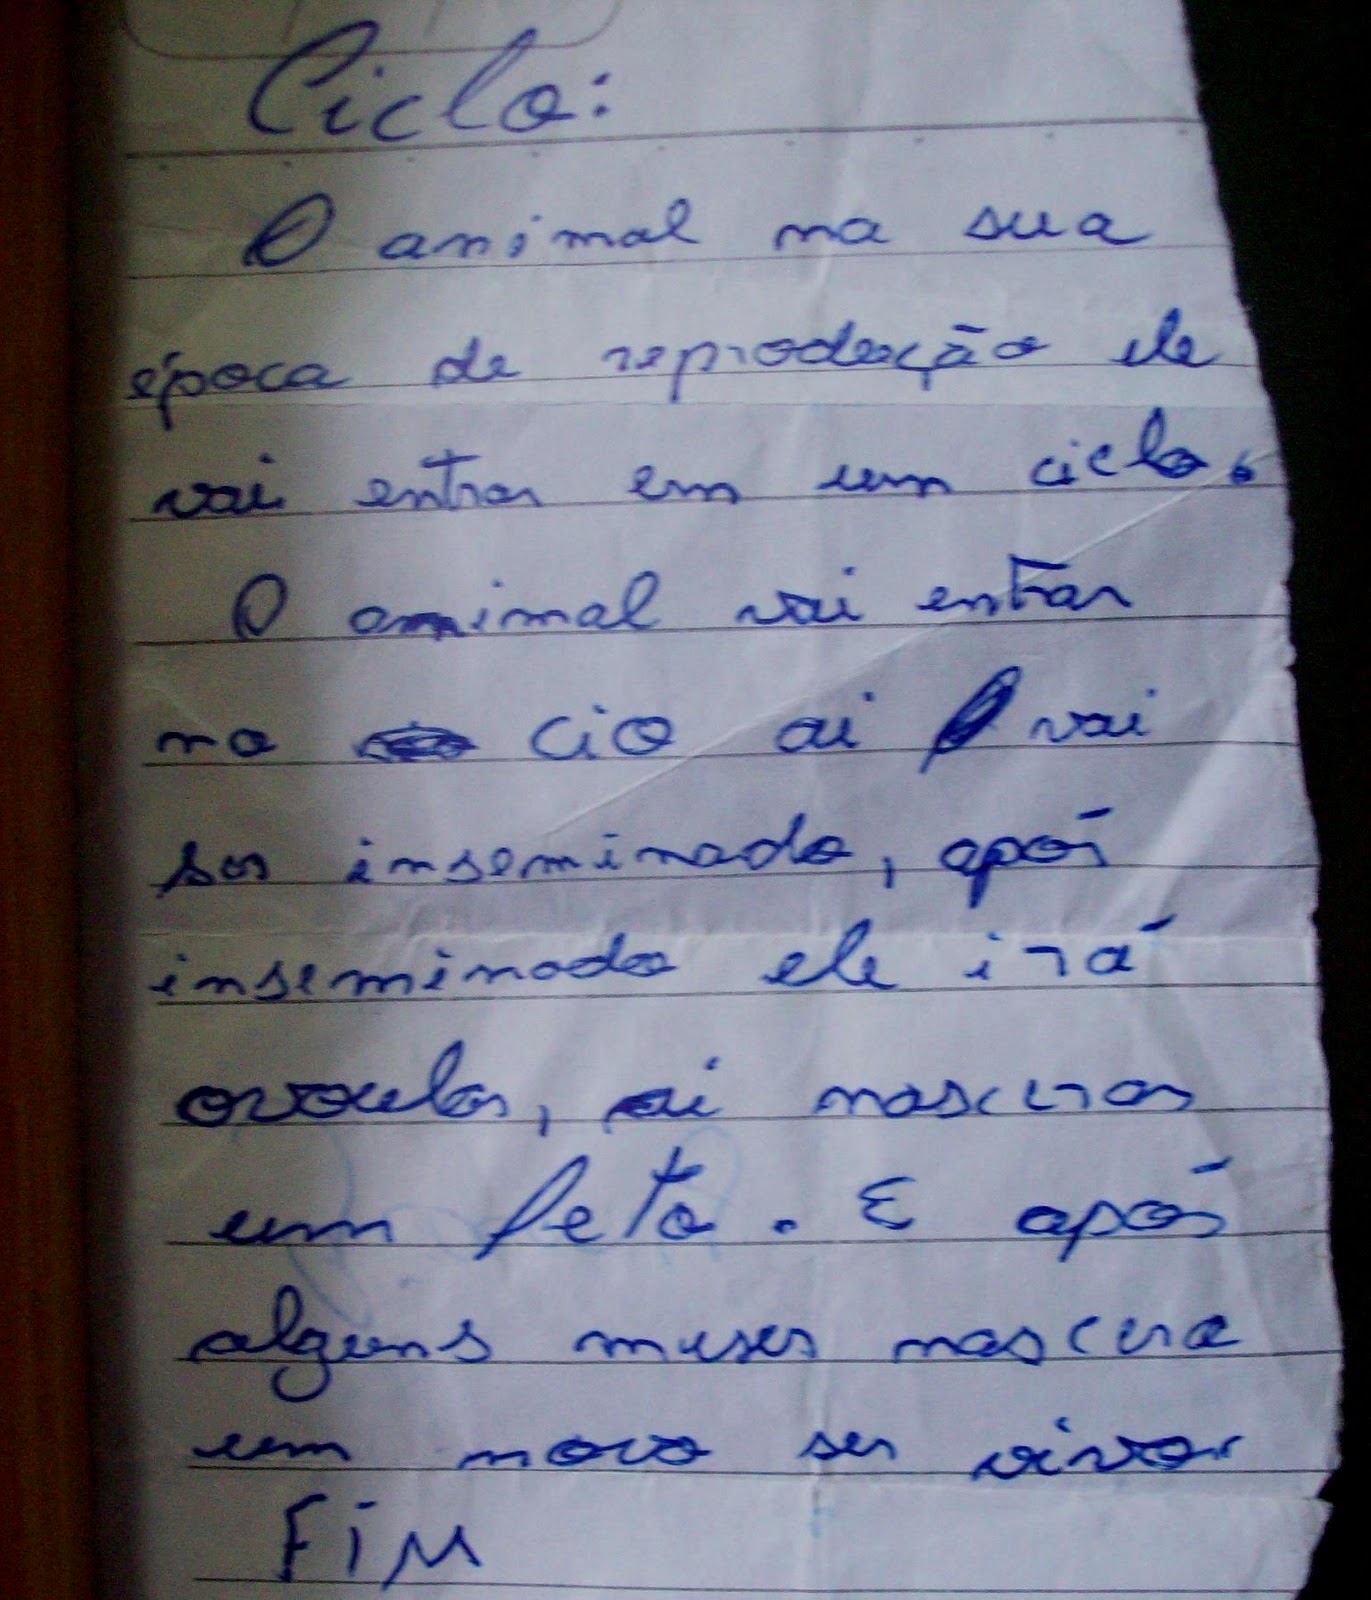 Ciclo:
O animal na sua
época de reprodução ele
vai entrar em um ciclo.
O animal vai entrar
no cio ai vai
ser inseminado, após
inseminado ele irá
ovoular, ai nascerar
um feto. E após
alguns meses nascera
um novo ser vivo.
FiM